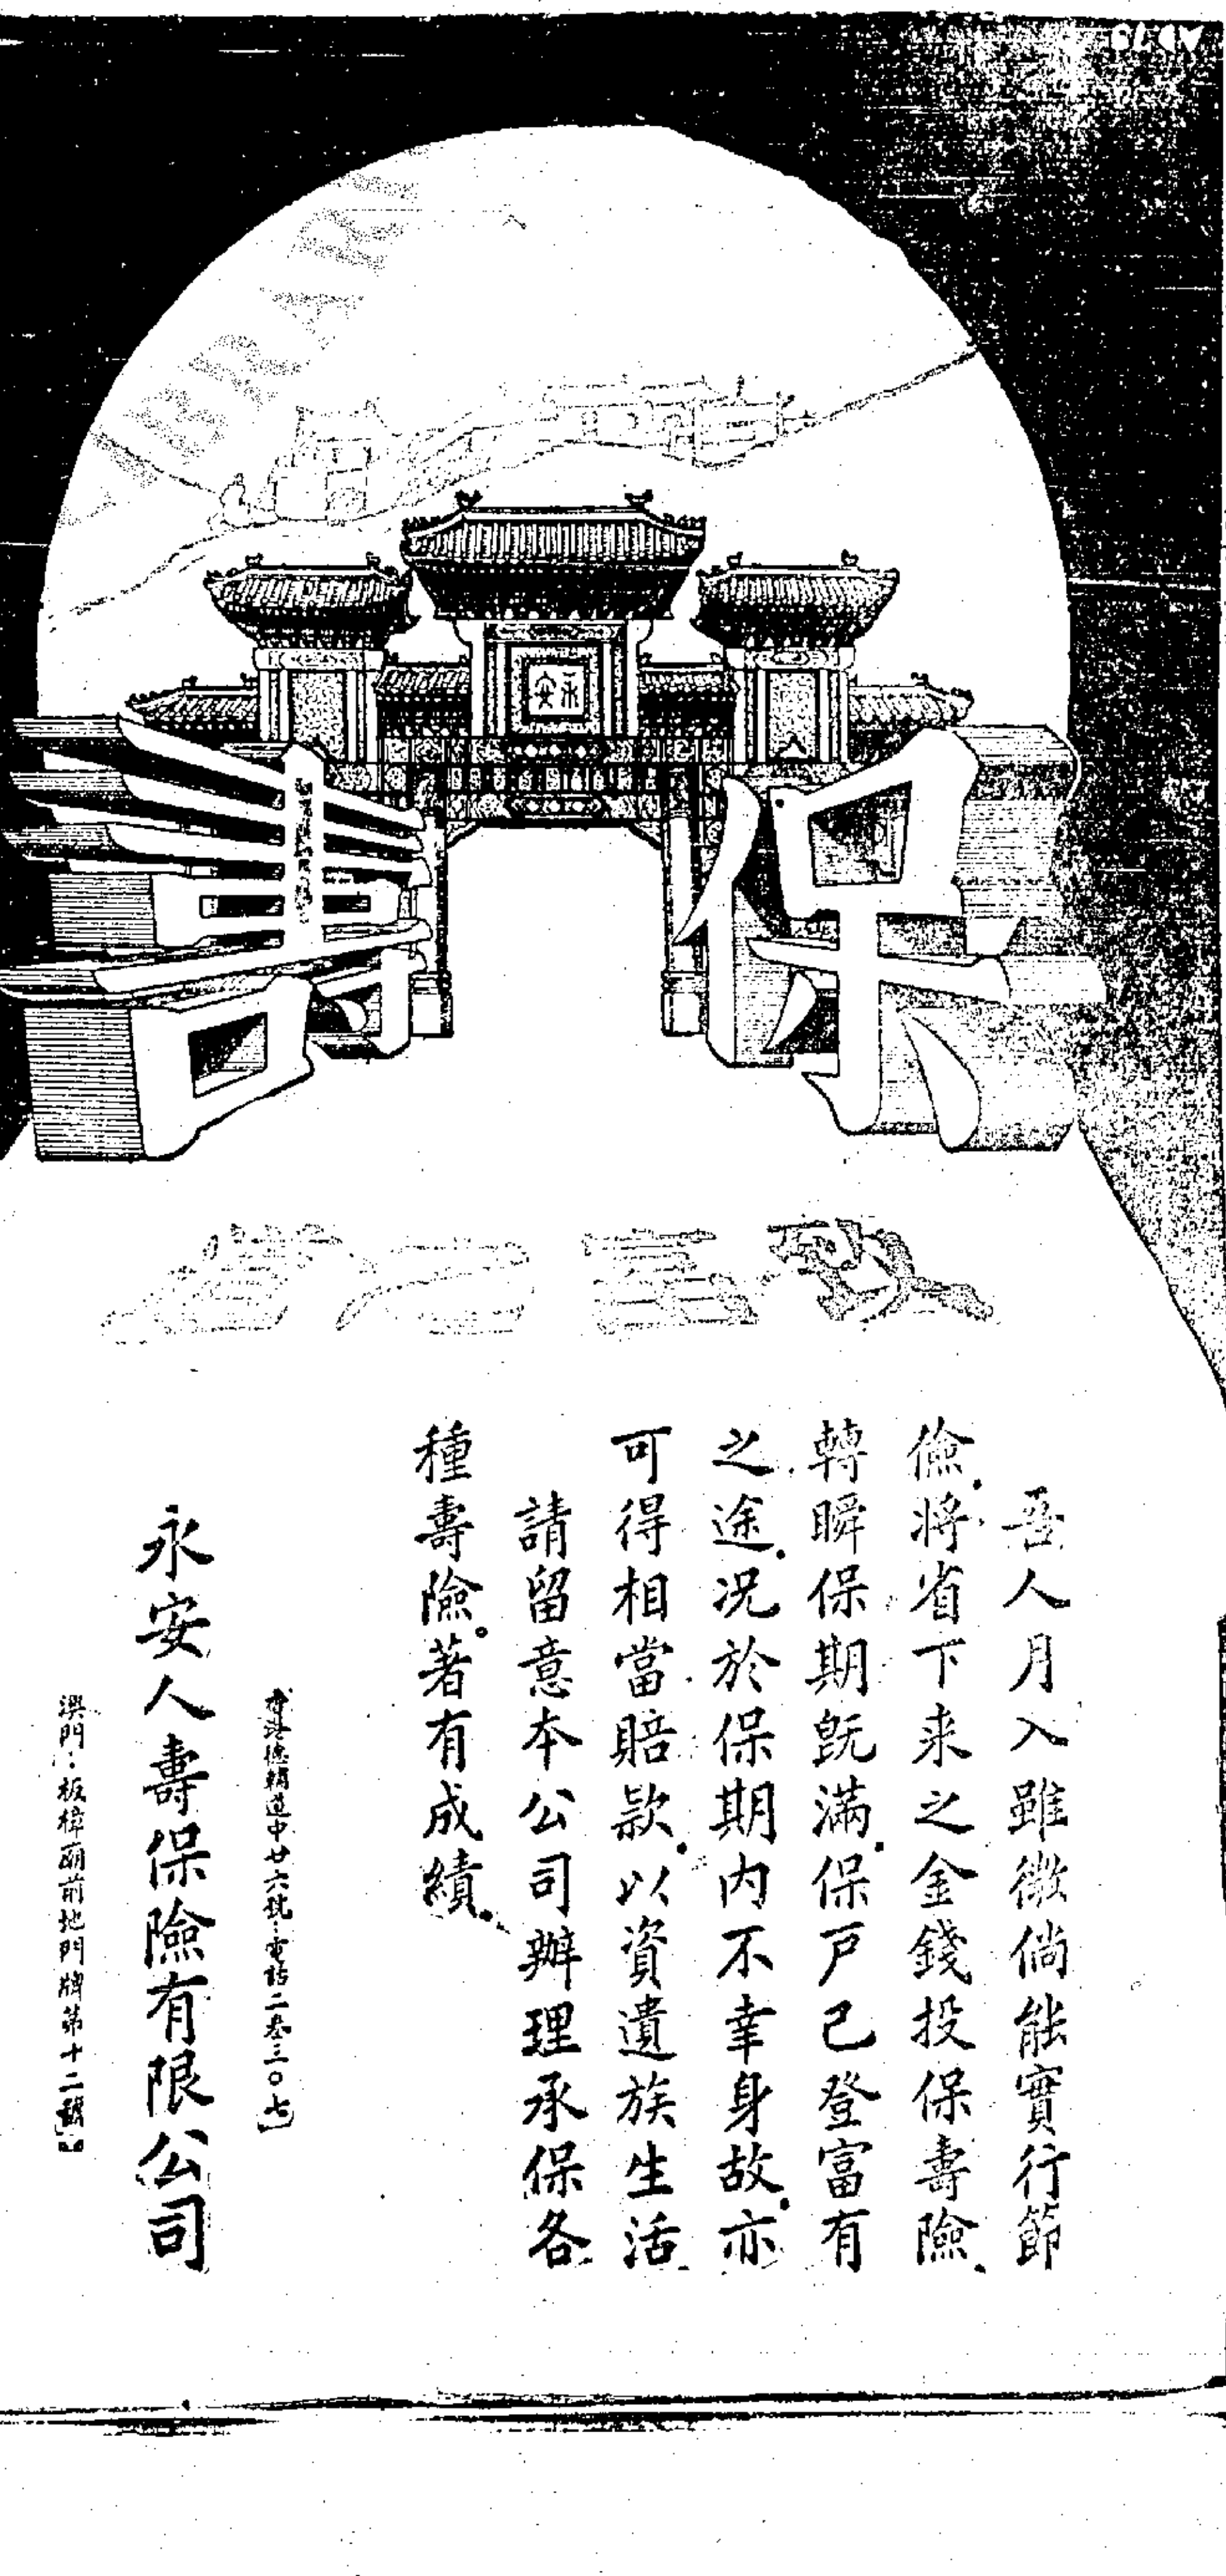 保壽
永安
吾人月入雖微倘能實行節
儉.將省下来之金錢投保壽險.
轉瞬保期既滿.保戶已登富有
之途.况於保期内不幸身故.亦
可得相當賠款.以資遺族生活
請留意本公司辦理承保各
種壽險。著有成績.
香港德輔道中廿六號:電話二叁三〇七
永安人壽保險有限公司
澳門:板樟廟前地門牌第十二號